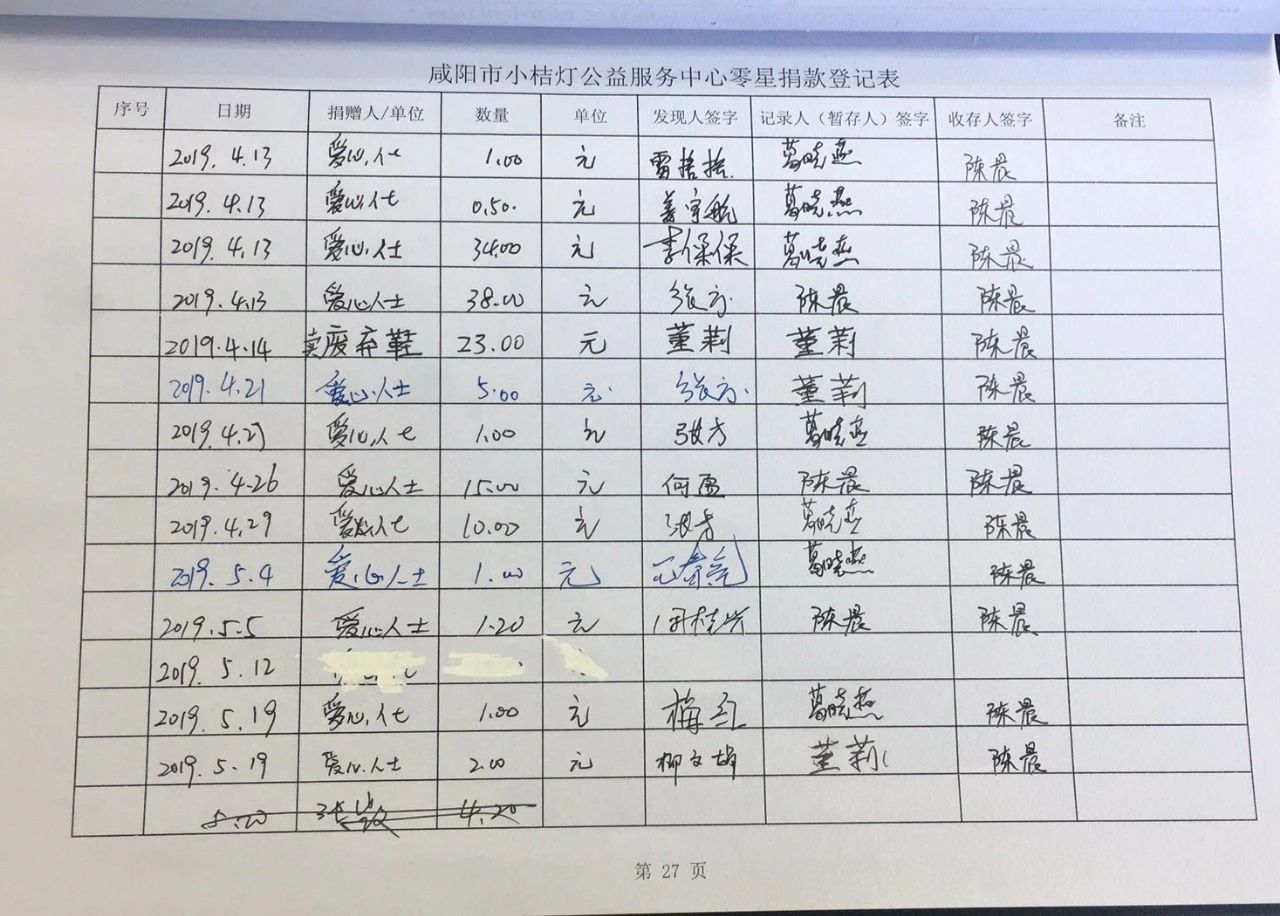 咸阳市小桔灯公益服务中心零星捐款登记表
序号 日期 捐赠人/单位 数量 单位 发现人签字 记录人（暂存人）签字 收存人签字 备注
2019.4.13 爱心人士 1.00 元 雷 葛晓燕 陈晨
2019.4.13 爱心人士 0.50 元 姜宇航 葛晓燕 陈晨
2019.4.13 爱心人士 34.00 元 李保保 葛晓燕 陈晨
2019.4.13 爱心人士 38.00 元 张方 陈晨 陈晨
2019.4.14 卖废弃鞋 23.00 元 董莉 董莉 陈晨
2019.4.21 爱心人士 5.00 元 张方 董莉 陈晨
2019.4. 爱心人士 1.00 元 张方 葛晓燕 陈晨
2019.4.26 爱心人士 15.00 元 何盈 陈晨 陈晨
2019.4.29 爱心人士 10.00 元 张方 葛晓燕 陈晨
2019.5.4 爱心人士 1.00 元 葛晓燕 陈晨
2019.5.5 爱心人士 1.20 元 陈晨 陈晨
2019.5.12
2019.5.19 爱心人士 1.00 元 梅红 葛晓燕 陈晨
2019.5.19 爱心人士 2.00 元 柳文娟 董莉 陈晨
5.20 4.20
第 27 页